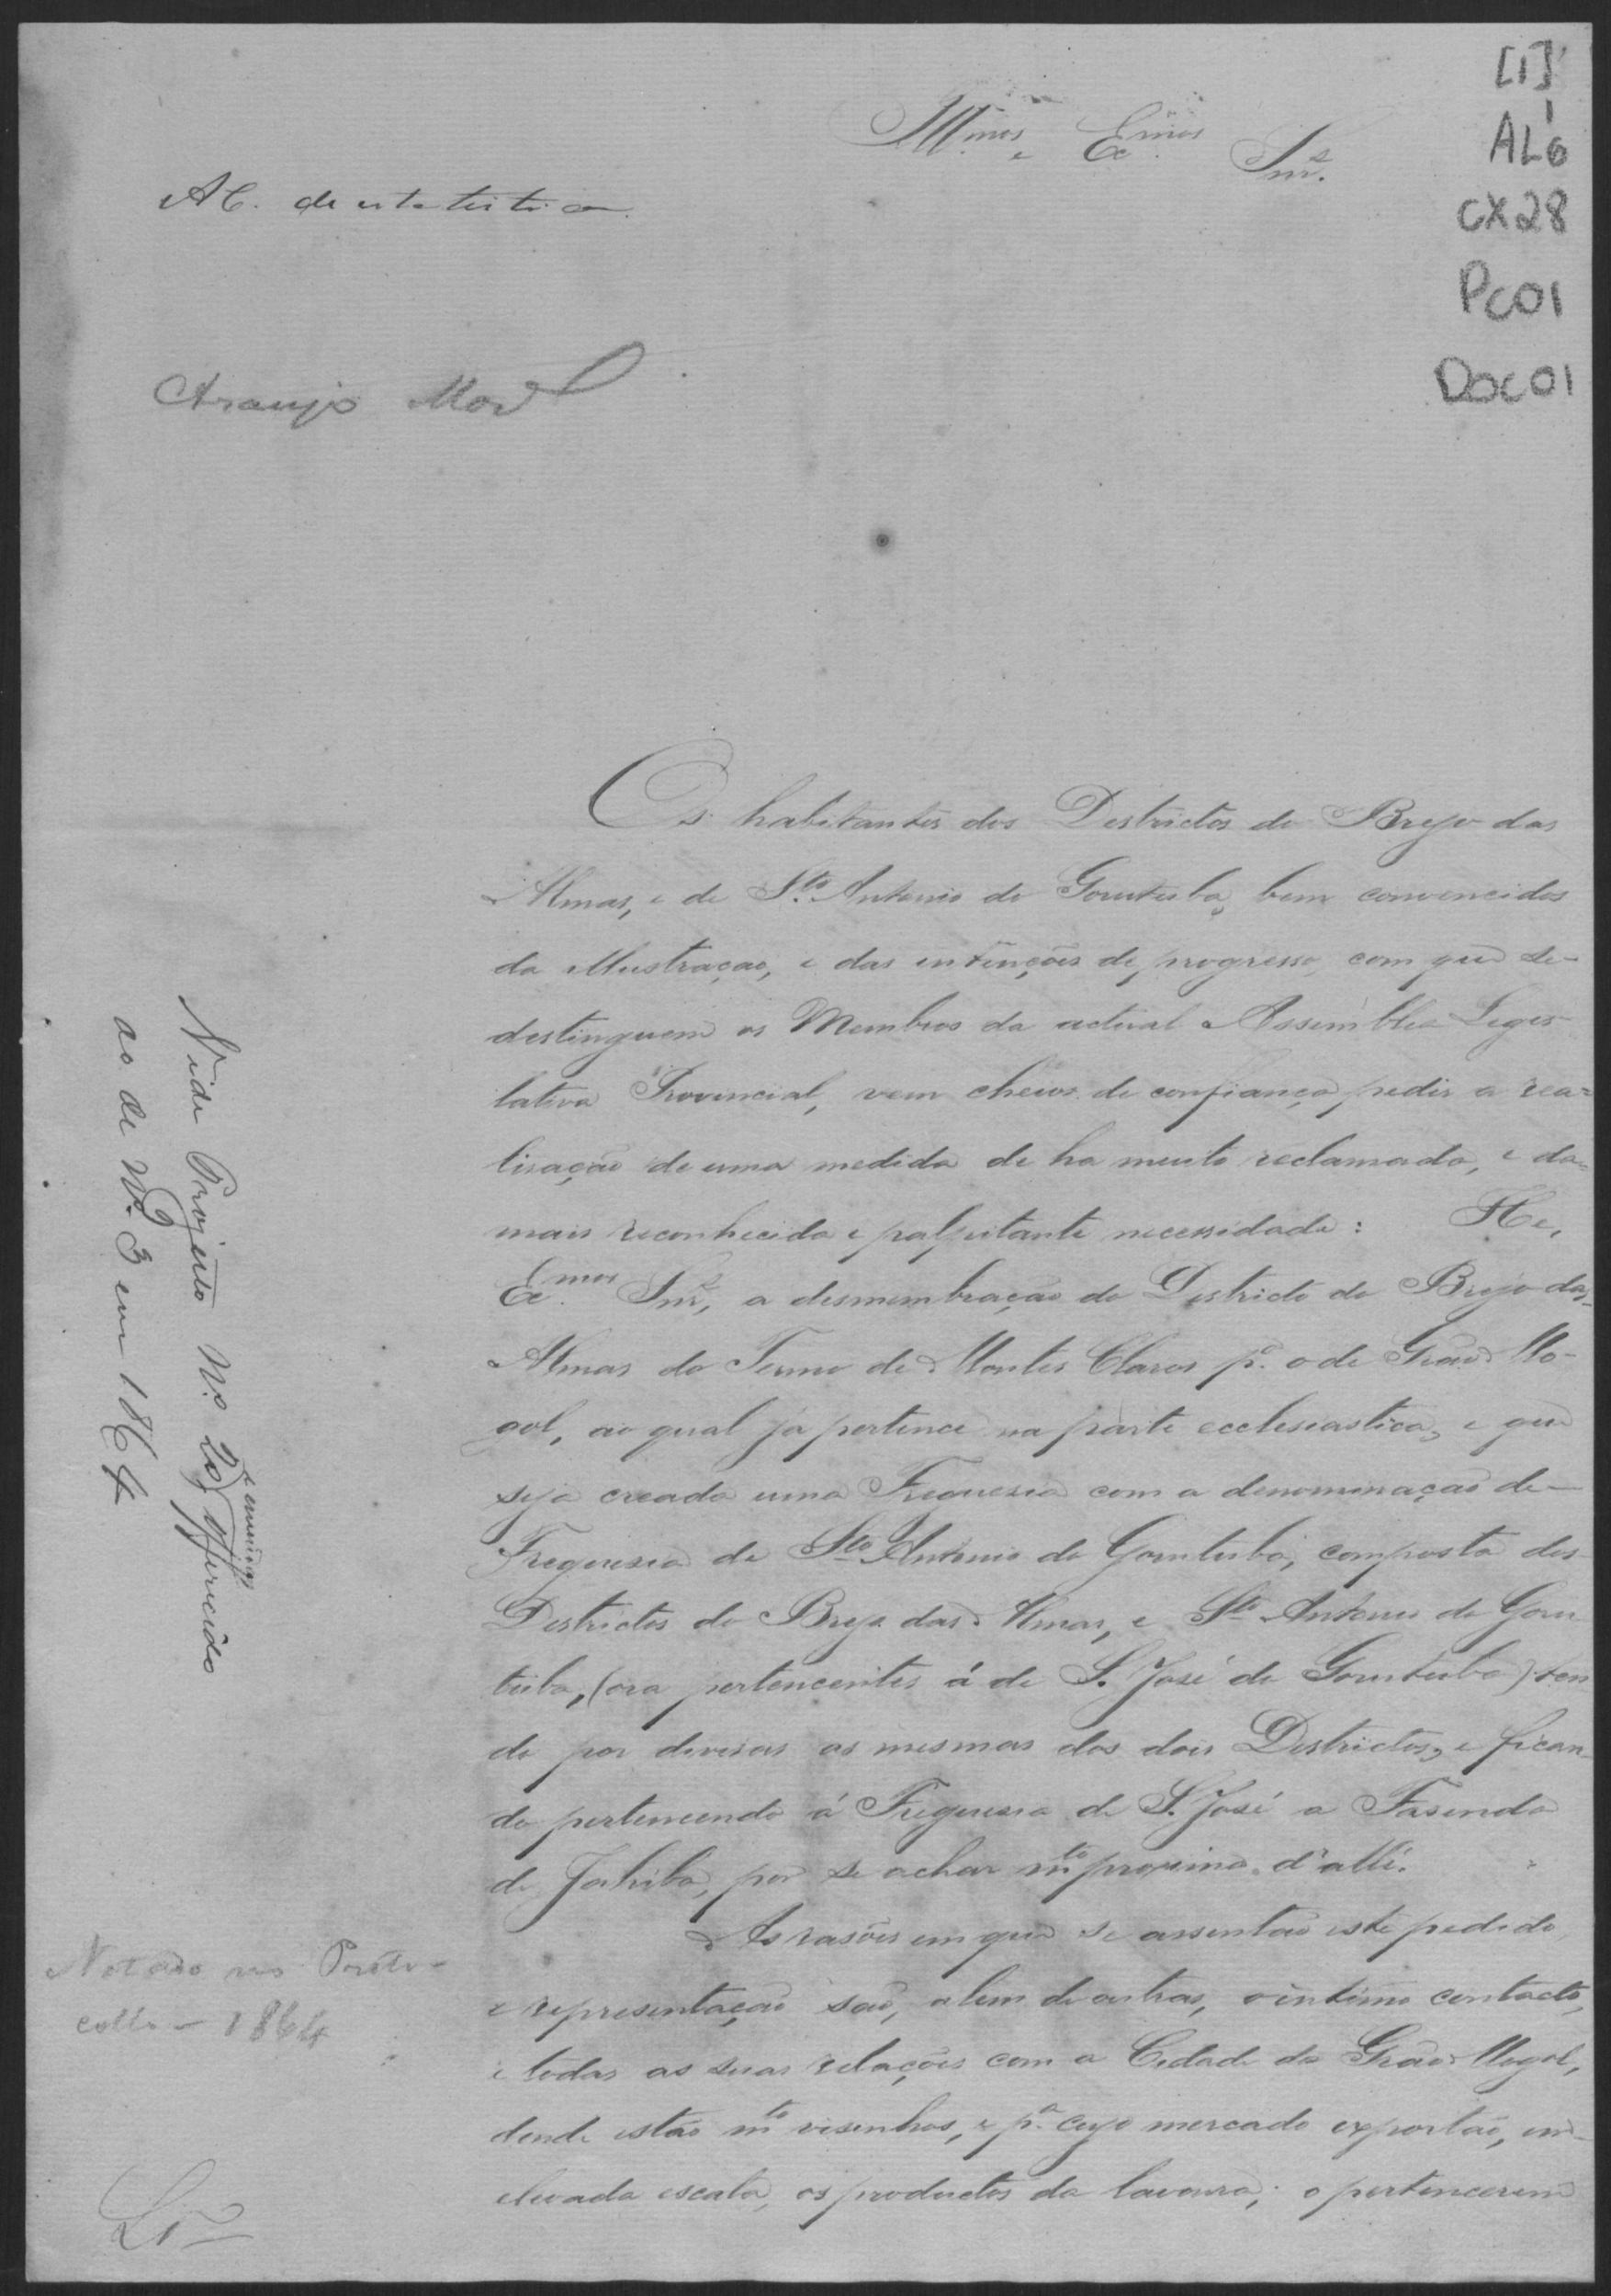 [1]
AL6
CX28
PC01
DOC01
Illmos e Exmos Snrs.
Á C. de estatistica
Araujo
Os habitantes dos Destrictos do Brejo das
Almas, e de Sto. Antonio do Gorutuba, bem convencidos
da illustração, e das intenções de progresso, com que se
destinguem os Membros da actual Assemblea Legis-
lativa Provincial, vem cheios de confiança pedir a rea-
lisação de uma medida de ha muito reclamada, e da
mais reconhecida e palpitante necessidade: He,
Exmos Snrs, a desmembração do Destricto do Brejo das
Almas do Termo de Montes Claros pa. o de Grão Mo-
gol, ao qual já pertence na parte ecclesiastica, e que
seja creada uma Freguesia com a denominação de-
Freguesia de Sto Antonio do Gorutuba, composta dos
Destrictos do Brejo das Almas, e Sto Antonio do Goru-
tuba, (ora pertencentes á de S. José do Gorutuba) ten-
do por divisas as mesmas dos dois Destrictos, e fican-
do pertencendo á Freguesia de S. José a Fasenda
de Jahiba, por se achar mto proxima d'alli.
As rasões em que se assentão este pedido
e representação são, alem de outras, o intimo contacto,
e todas as suas relações com a Cidade do Grão Mogol,
donde estão mto visinhos, e pa. cujo mercado exportão, em
elevada escala, os productos da lavoura; o pertencerem
Vide Projecto No. 20, e emendas offerecido
ao de No. 3 em 1864
Notado no Proto-
collo - 1864